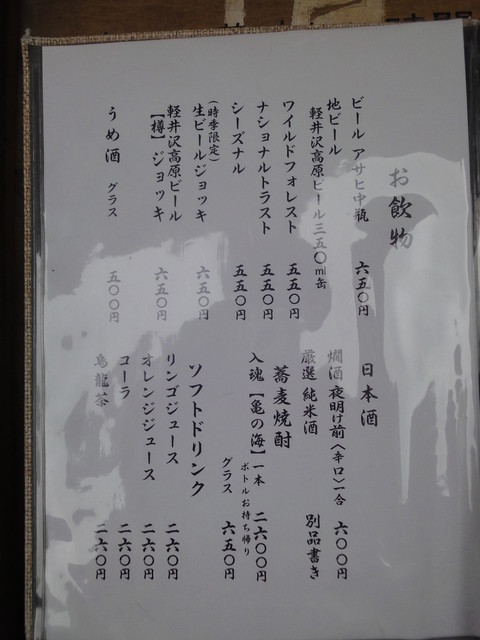 お飲物
ビール アサヒ中瓶 六五〇円
地ビール
軽井沢高原ビール三五〇ml缶
ワイルドフォレスト 五五〇円
ナショナルトラスト 五五〇円
シーズナル 五五〇円
(時季限定)
生ビールジョッキ 六五〇円
軽井沢高原ビール
【樽】ジョッキ 六五〇円
うめ酒 グラス 五〇〇円
日本酒
燗酒 夜明け前〈辛口〉一合 六〇〇円
厳選 純米酒 別品書き
蕎麦焼酎
入魂【亀の海】一本 二六〇〇円
ボトルお持ち帰り
グラス 六五〇円
ソフトドリンク
リンゴジュース 二六〇円
オレンジジュース 二六〇円
コーラ 二六〇円
烏龍茶 二六〇円